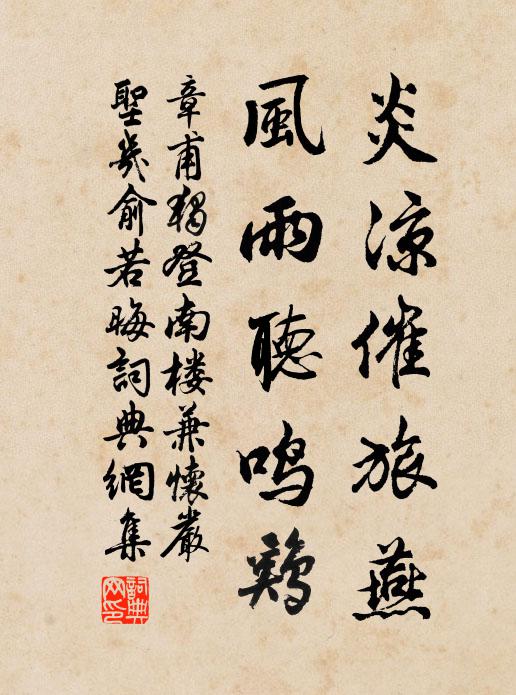 炎涼催旅燕
風雨聽鳴鷄
章甫獨登南楼兼懷嚴
聖幾俞若晦詞典網集
詞典網印